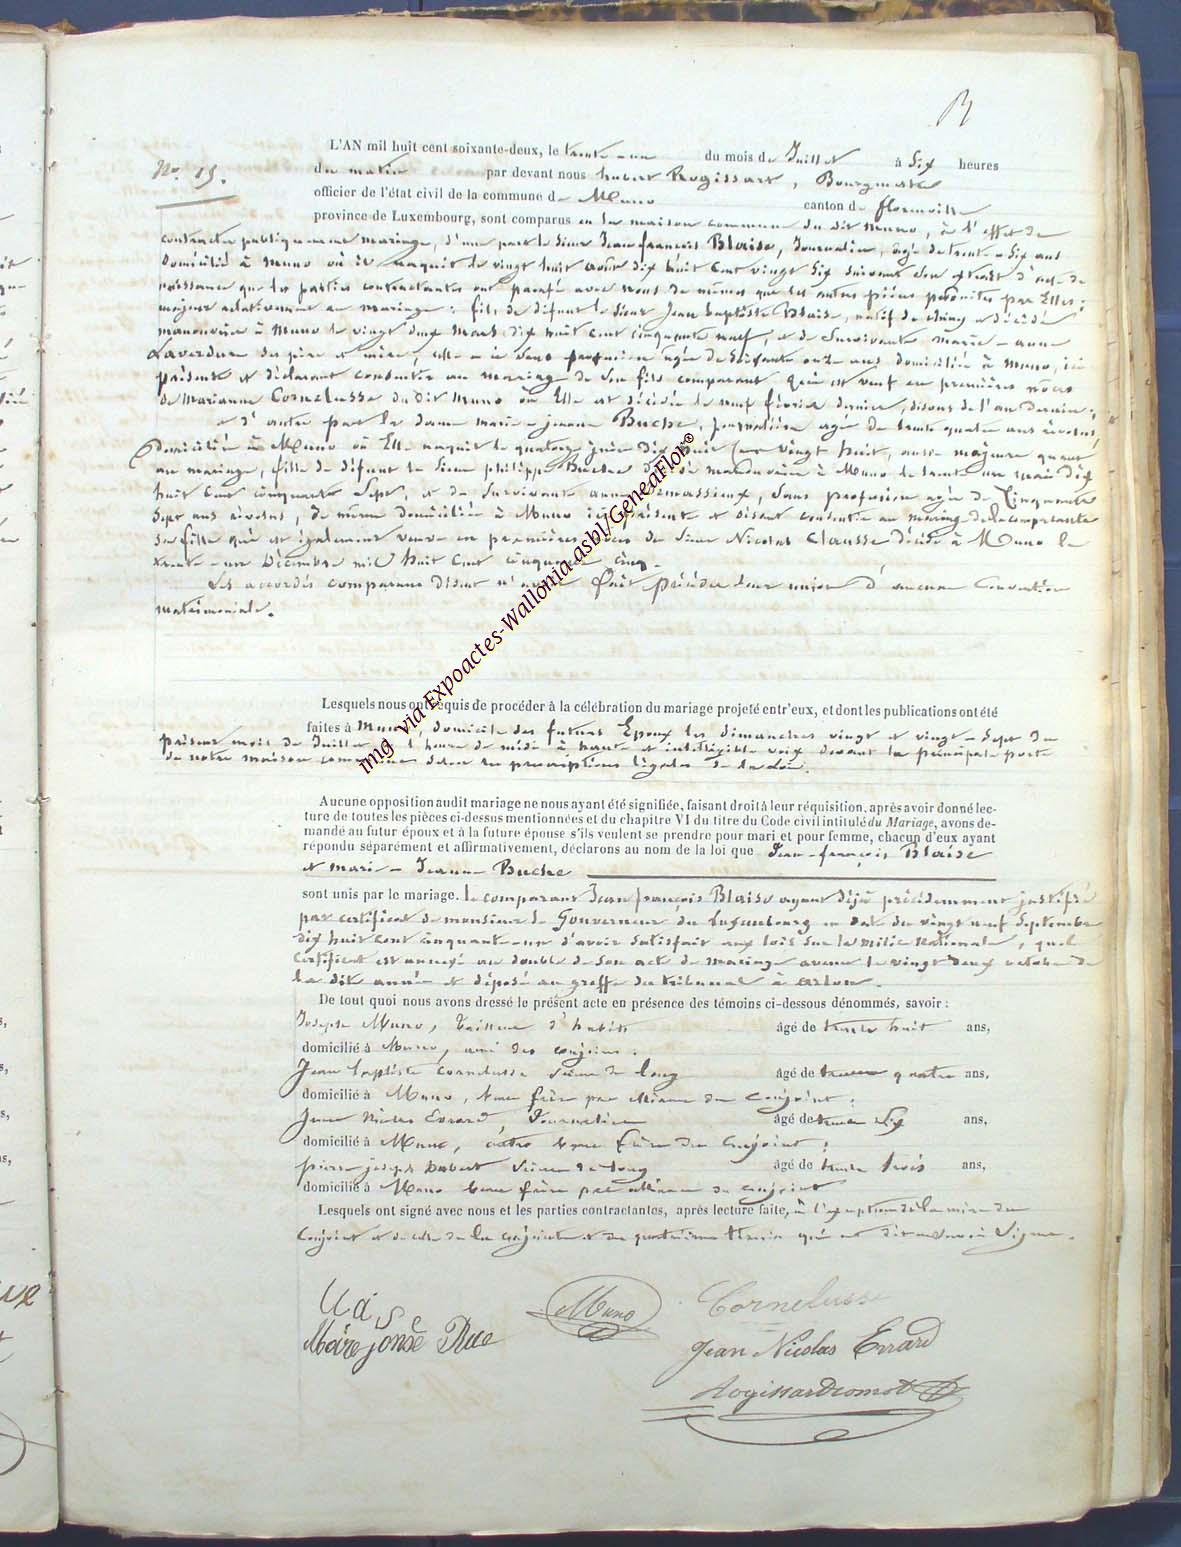 No. 15.
L'AN mil huit cent soixante-deux, le trente-un du mois de Juillet à Six heures
du matin par devant nous hubert Rogissart, Bourgmestre
officier de l'état civil de la commune de Muno canton de florenville
province de Luxembourg, sont comparus en la maison commune du dit Muno, à l'effet de
contracter publiquement mariage, d'une part le Sieur Jean françois Blaise, Journalier, âgé de trente-Six ans
domicilié à Muno où il naquit le vingt huit août dix huit cent vingt Six suivant son extrait d'acte de
naissance que les parties contractantes ont paraphé avec nous de même que les autres pièces produites par Elles;
majeur relativement au mariage; fils de défunt le Sieur Jean baptiste Blaise, natif de Chiny et décédé
manouvrier à Muno le vingt deux Mars dix huit cent cinquante neuf, et de Survivante marie-anne
Laverdure ses père et mère, celle-ci Sans profession âgée de Soixante onze ans domiciliée à Muno, ici
présente et déclarant consentir au mariage de son fils comparant qui est veuf en premières nôces
de Marianne Cornelusse du dit Muno où Elle est décédée le neuf février dernier, disons de l'an dernier;
et d'autre part la dame marie-jeanne Buche, journalière âgée de trente quatre ans révolus,
domiciliée à Muno où Elle naquit le quatorze juin dix huit Cent vingt huit, aussi majeure quant
au mariage, fille de défunt le Sieur philippe Buche décédé manouvrier à Muno le trente un mai dix
huit Cent cinquante Sept, et de Survivante anne Demassieux, Sans profession âgée de Cinquante
Sept ans révolus, de même domiciliée à Muno ici présente et disant consentir au mariage de la comparante
Sa fille qui est également veuve en premières nôces de Sieur Nicolas Clausse décédé à Muno le
trente-un Décembre mil huit Cent cinquante cinq.
Les accordés comparans disent n'avoir fait précéder leur union d'aucune Convention
matrimoniale.
Lesquels nous ont requis de procéder à la célébration du mariage projeté entr'eux, et dont les publications ont été
faites à Muno, domicile des futurs Epoux les dimanches vingt et vingt-Sept du
présent mois de Juillet à l'heure de midi à haute et intelligible voix devant la principale porte
de notre maison commune selon les prescriptions légales de la loi.
Aucune opposition audit mariage ne nous ayant été signifiée, faisant droit à leur réquisition, après avoir donné lec-
ture de toutes les pièces ci-dessus mentionnées et du chapitre VI du titre du Code civil intitulé du Mariage, avons de-
mandé au futur époux et à la future épouse s'ils veulent se prendre pour mari et pour femme, chacun d'eux ayant
répondu séparément et affirmativement, déclarons au nom de la loi que Jean-françois Blaise
et marie-Jeanne Buche
sont unis par le mariage. le comparant Jean françois Blaise ayant déjà précédemment justifié
par certificat de monsieur le Gouverneur du Luxembourg en date du vingt neuf Septembre
dix huit cent cinquante-un d'avoir Satisfait aux lois sur la milice Nationale, quel
certificat est annexé au double de son acte de mariage avenu le vingt deux octobre de
la dite année et déposé au greffe du tribunal à arlon.
De tout quoi nous avons dressé le présent acte en présence des témoins ci-dessous dénommés, savoir :
Joseph Muno, Tailleur d'habits âgé de trente huit ans,
domicilié à Muno, ami des conjoins;
Jean baptiste Cornelusse Scieur de long âgé de trente quatre ans,
domicilié à Muno, beau frère par alliance du Conjoint;
Jean Nicolas Evrard, Journalier âgé de trente Six ans,
domicilié à Muno, autre beau frère du conjoint;
pierre joseph hubert Scieur de long âgé de trente trois ans,
domicilié à Muno beau frère par alliance du conjoint
Lesquels ont signé avec nous et les parties contractantes, après lecture faite, à l'exception de la mère du
Conjoint et de celle de la conjointe et du quatrième témoin qui ont dit ne savoir Signer.
Muno
Cornelusse
Jean Nicolas Errard
img via Expoactes-Wallonia.asbl/GeneaFlor®